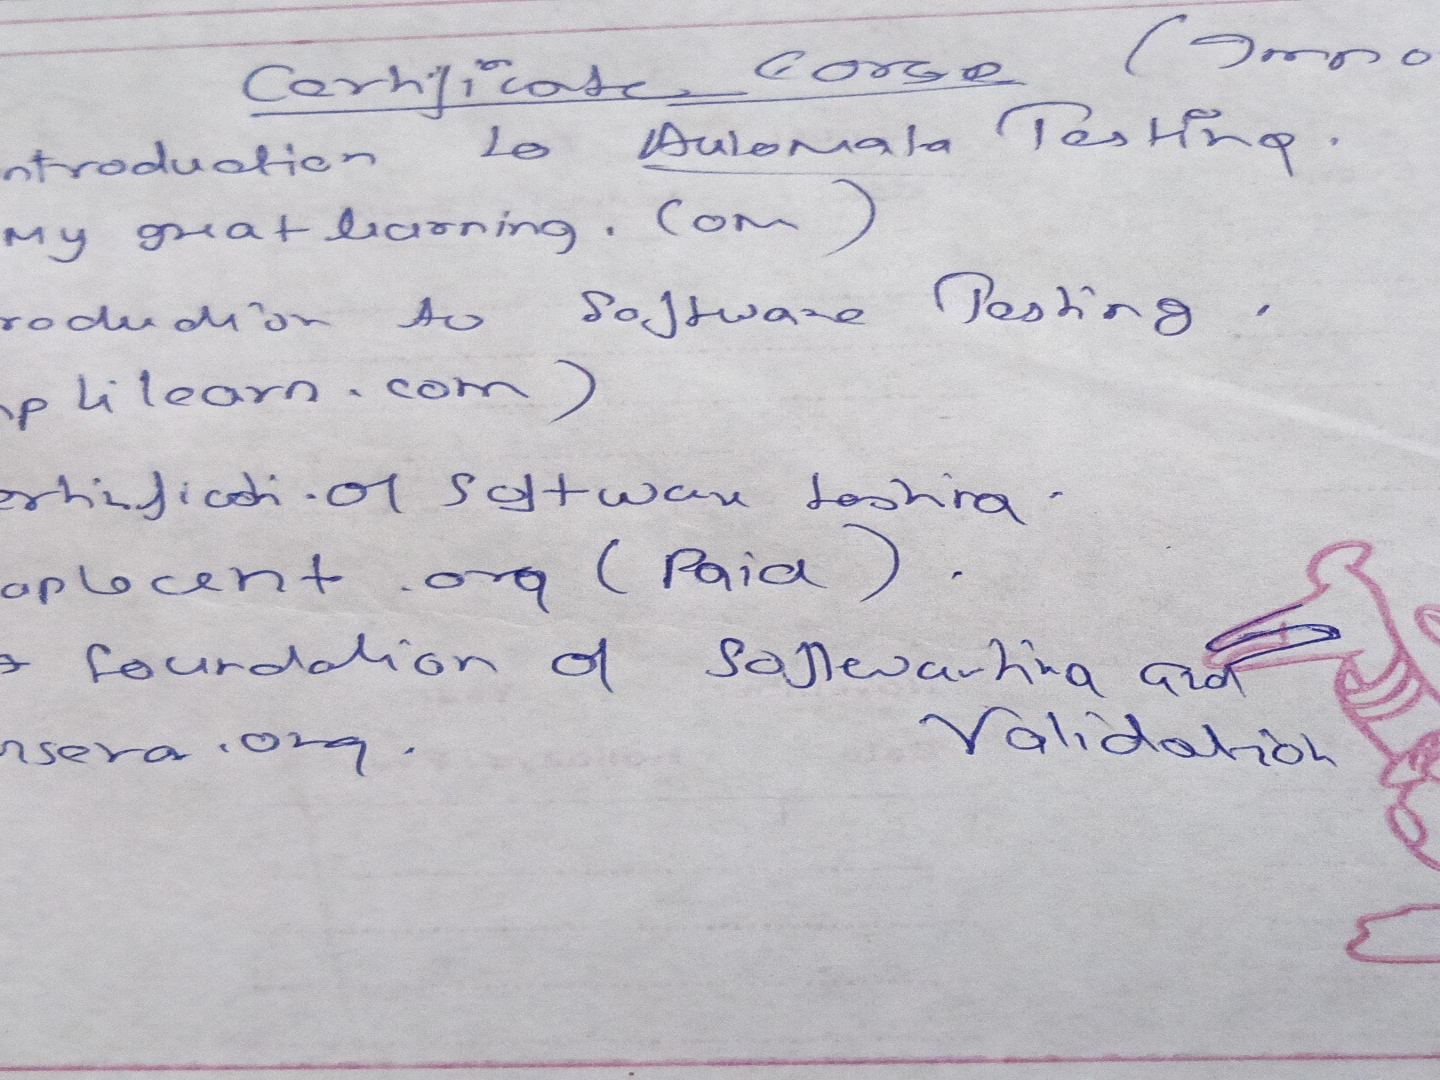 Certificate Corse (Impo
ntroduction to Automata Testing.
My great learning. Com)
roduction to Software Testing.
mplilearn.com)
ertinficati. of Software testing.
.org (Paid).
foundation of and
Validation
rsera.org.